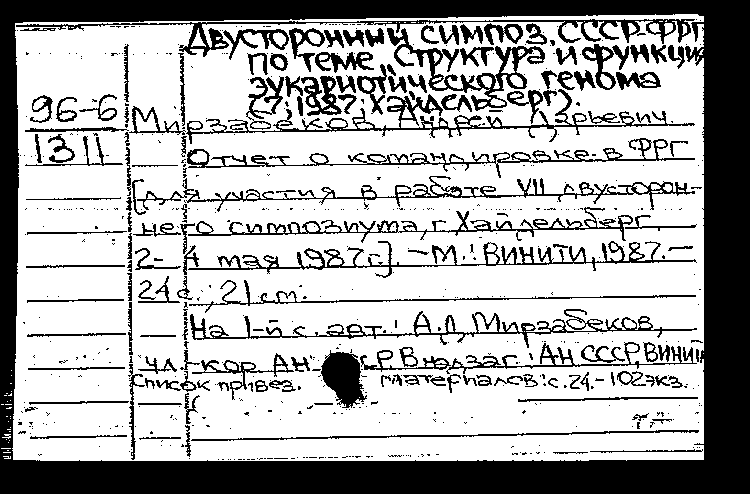 Двусторонный симпоз. СССР-ФРГ
по теме „Структура и функция
эукариотического генома
(7; 1987; Хайдельберг).
96-6
Мирзабеков, Андрей Дарьевич.
1311
Отчет о командировке в ФРГ
[для участия в работе VII двусторон-
него симпозиума, г. Хайдельберг,
2- 4 мая 1987г.]. – М.: ВИНИТИ, 1987. –
24 с.; 21 см.
На 1-й с. авт.: А.Д. Мирзабеков,
чл.-кор АН В надзаг: АН СССР, ВИНИТИ
Список привез. материалов: с. 24. – 102 экз.